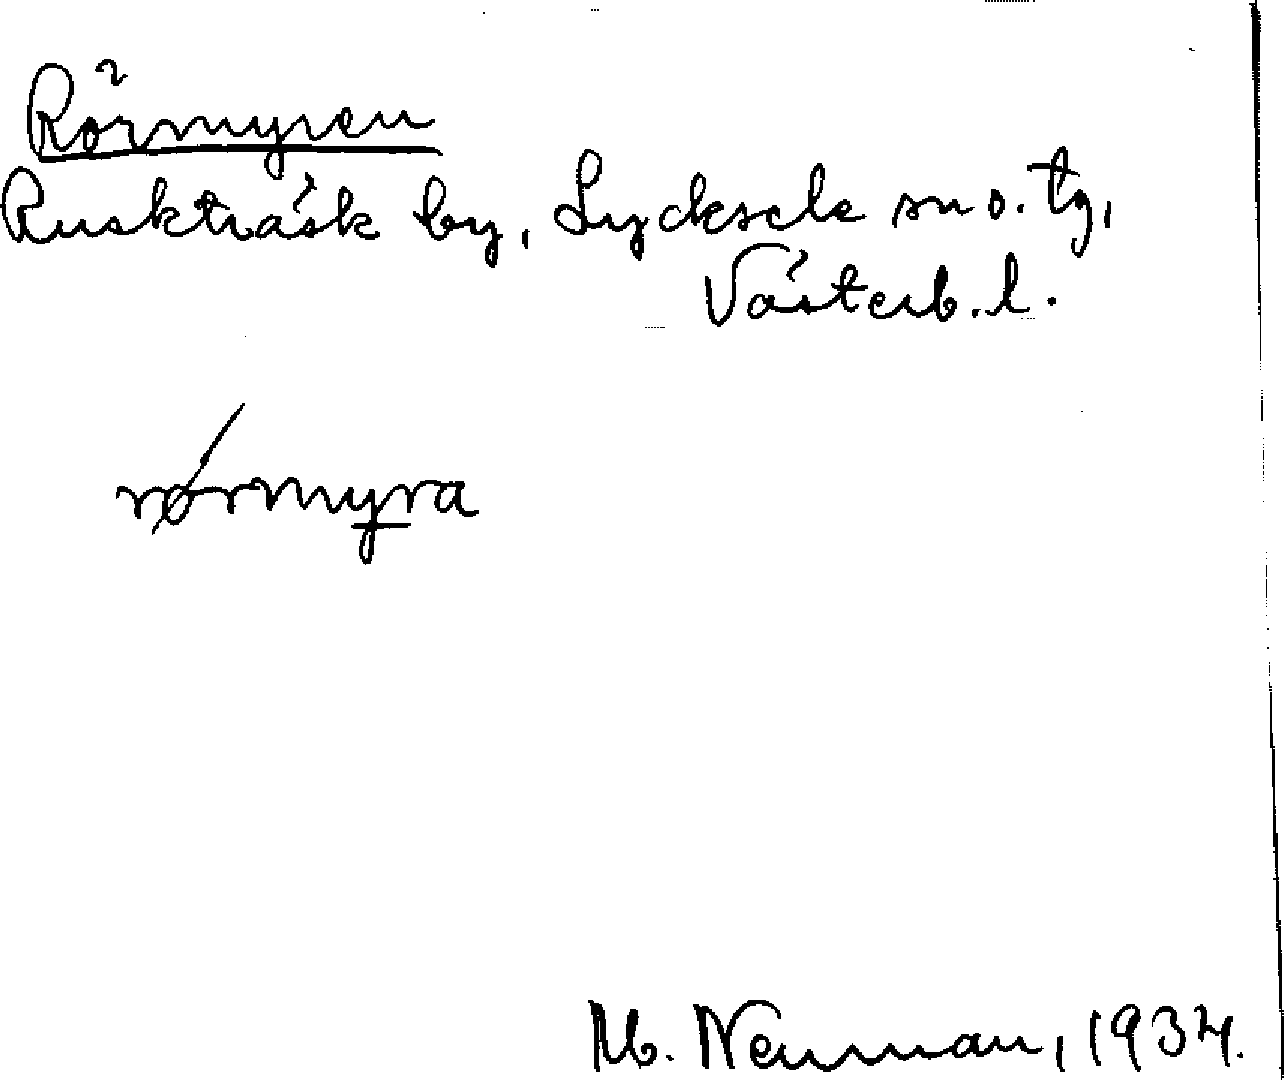 Rörmyren
Ruskträsk by, Lycksele sn o. tg,
Västerb. l.
rørmyra
M. Neuman, 1934.